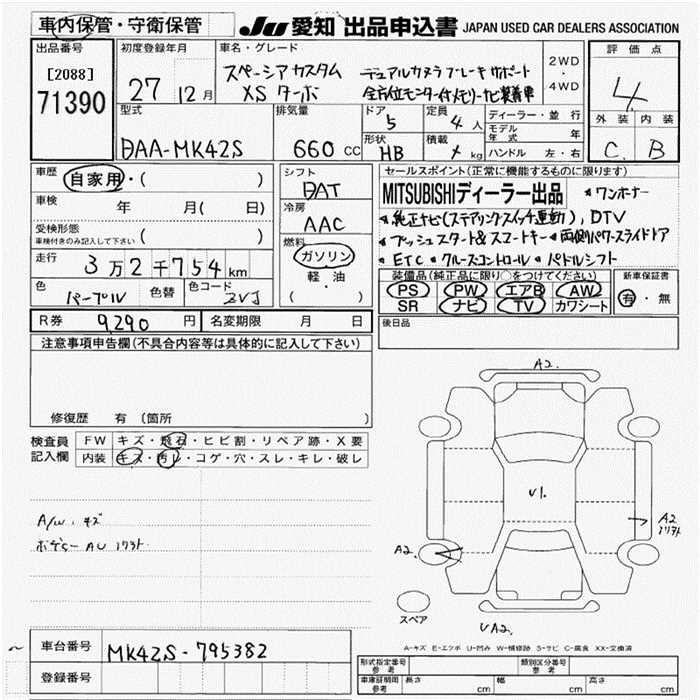 車内保管・守衛保管 JU 愛知 出品申込書 JAPAN USED CAR DEALERS ASSOCIATION
出品番号 初度登録年月 車名・グレード 評価点
[2088] 27 12月 スペーシアカスタム デュアルカメラブレーキサポート 2WD
71390 XS ターボ 全方位モニター付メモリーナビ装着車 ・ 4WD 4
型式 排気量 ドア 5 定員 4人 ディーラー・並行 外装 内装
DAA-MK42S 660 CC 形状 HB 積載 kg モデル年式 年 C. B
ハンドル 左・右
車歴 自家用・( ) シフト セールスポイント(正常に機能するものに限ります)
DAT MITSUBISHIディーラー出品 ワンオーナー
車検 年 月( 日) 冷房 純正ナビ(ステアリングスイッチ連動), DTV
受検形態 AAC プッシュスタート&スマートキー 両側パワースライドドア
車検付きのみ記入して下さい ( ) 燃料 ETC クルーズコントロール パドルシフト
走行 3万2千754km ガソリン 装備品(純正品に限り○をつけてください) 新車保証書
軽・油 PS PW エアB AW 有・無
色 パープル 色替 色コード ZVJ ( ) SR ナビ TV カワシート
R券 9,290円 名変期限 月 日 後日品
注意事項申告欄(不具合内容等は具体的に記入して下さい)
修復歴 有 (箇所
検査員 FW キズ・飛石・ヒビ割・リペア跡・X要
記入欄 内装 キズ・汚レ・コゲ・穴・スレ・キレ・破レ
A2.
V1.
A2
A2.
A/W. キズ
ボデー AU
スペア
UA2.
A-キズ E-エクボ U-凹み W-補修跡 S-サビ C-腐食 XX-交換済
車台番号 MK42S-795382
登録番号
形式指定番号 参考 類別区分番号 参考
車庫証明用 参考 長さ cm 幅 cm 高さ cm